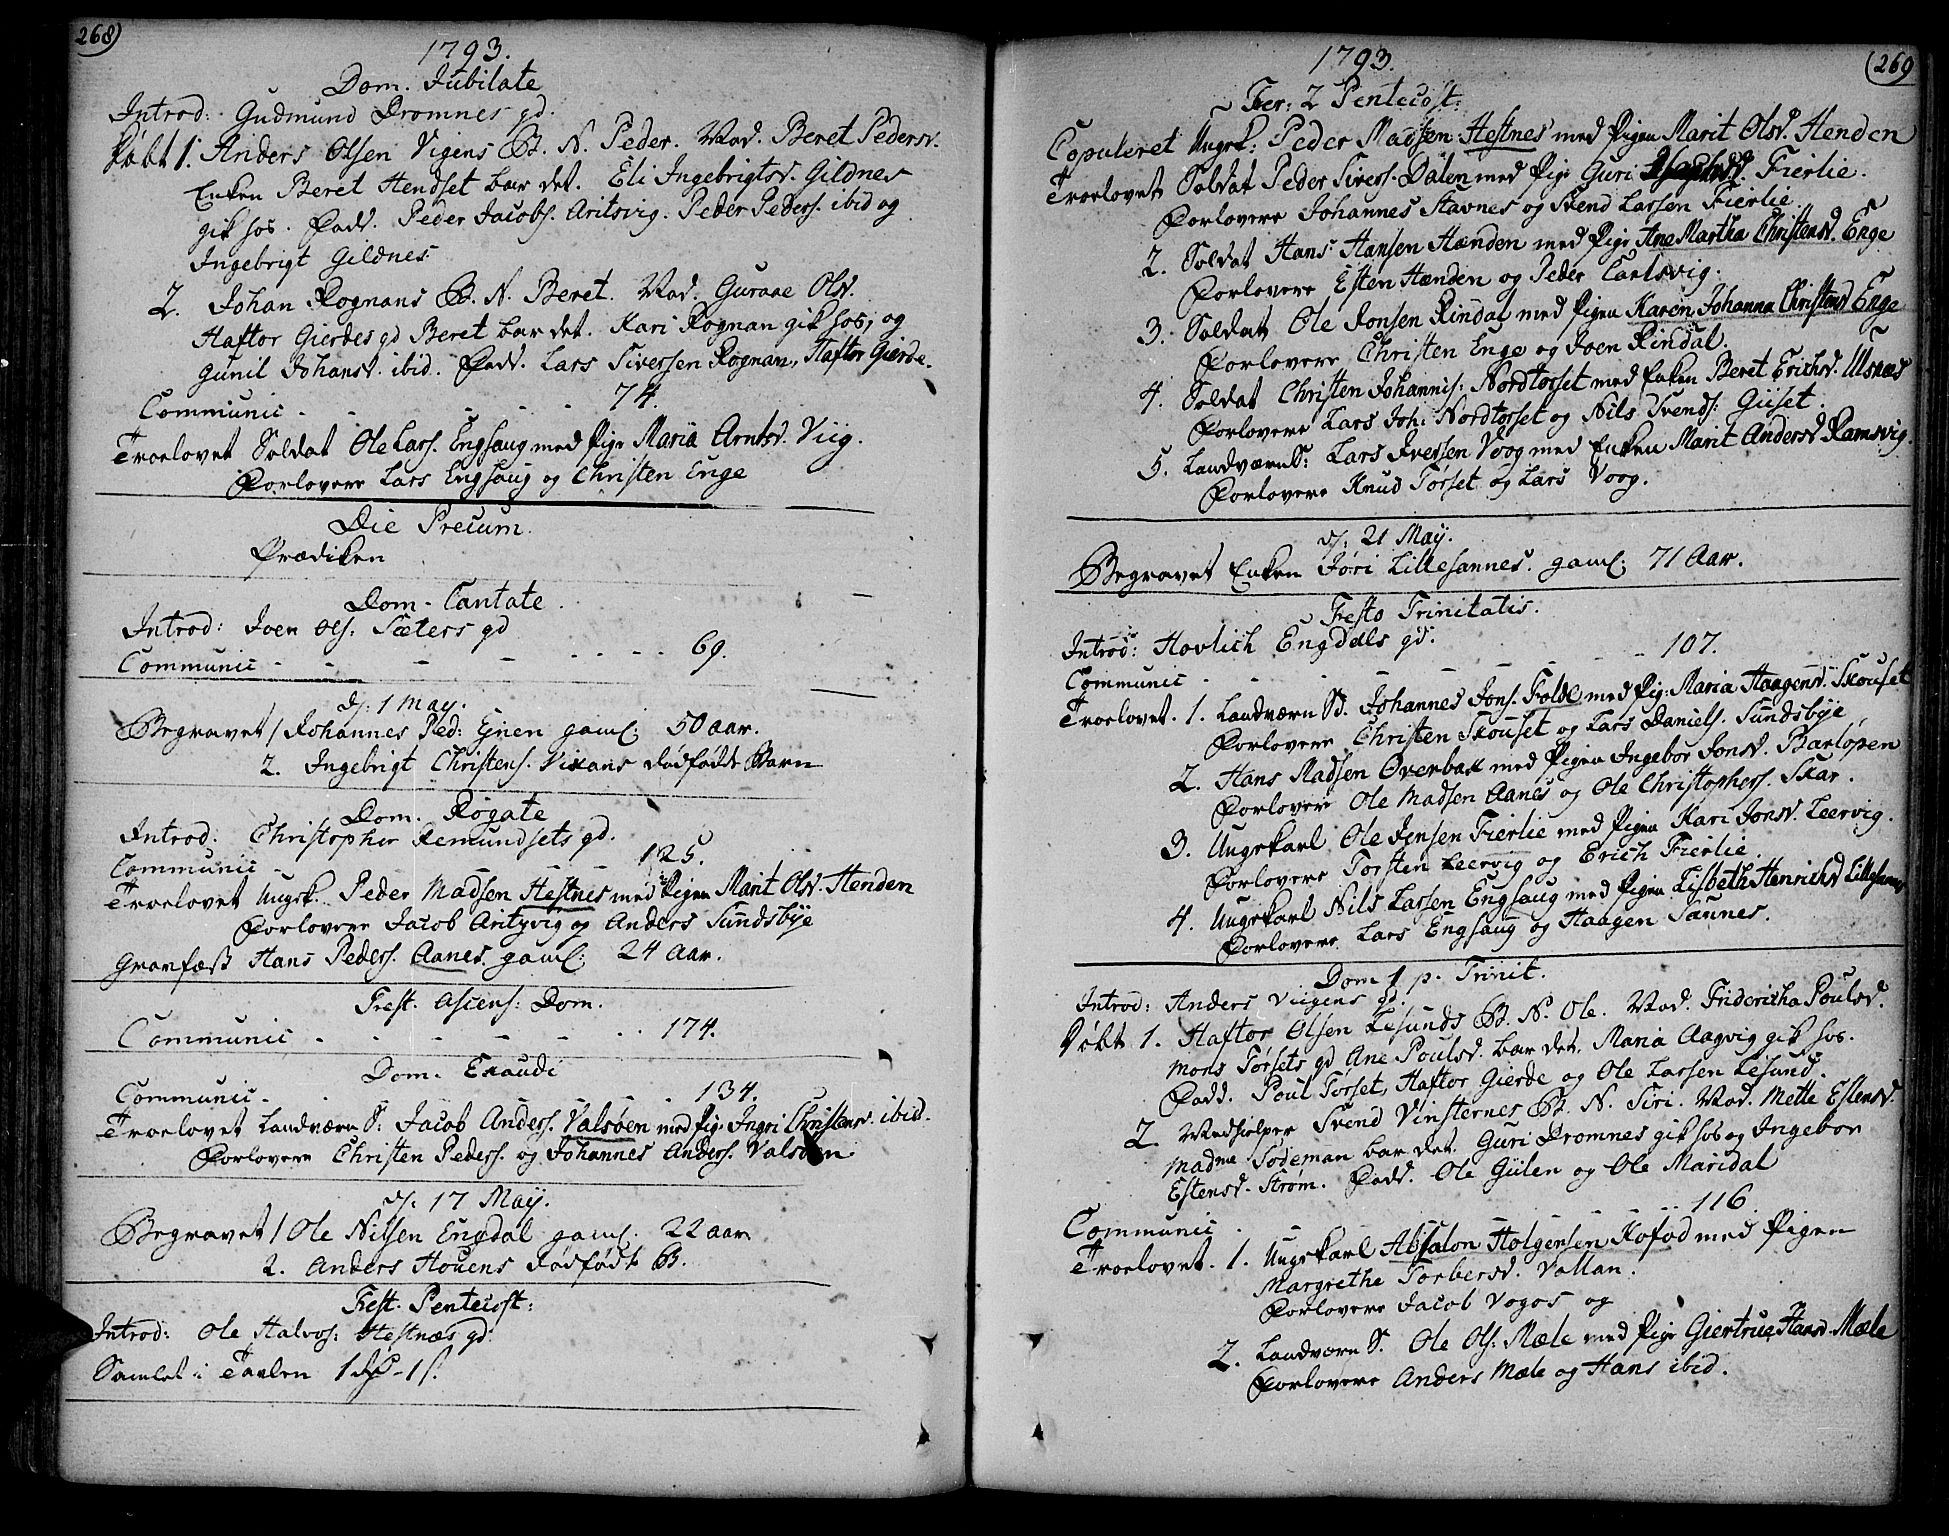 268)
1793.
Dom. Jubilate
Introd: Gudmund Dromnes gd.
Døbt 1. Anders Olsen Vigens B. N. Peder. Mod. Beret Pedersd.
Enken Beret Hendset bar det. Eli Ingebrigtsd. Gildnes
gik hos. Fadd. Peder Jacobs. Aritsvig. Peder Peders. ibid og
Ingebrigt Gildnes.
2. Johan Rognans B. N. Beret. Mod. Guraae Olsd.
Haftor Gierdes gd Beret bar det. Kari Rognan gik hos, og
Gunil Johansd. ibid. Fadd. Lars Siversen Rognan, Haftor Gierde.
Communic - - - - - 74.
Troelovet Soldat Ole Lars. Engsaug med Pige Maria Arntsd. Viig.
Forlovere Lars Engsaug og Christen Enge
Die Precum.
Prædiken
Dom. Cantate
Introd: Joen Ols. Sæters gd
Communic - - - - 69.
d. 1 May.
Begravet 1 Johannes Ped: Gnen gaml: 50 aar.
2. Ingebrigt Christens. Vixans dødfødde Barn
Dom. Rogate
Introd. Christopher Remundsets gd.
Communic - - - 125.
Troelovet Ungk. Peder Madsen Hestnes med Pigen Marit Olsd. Henden
Forlovere Jacob Aritzvig og Anders Sundsbye
Gravfæst Hans Peders. Aanes. gaml: 24 Aar.
Fest. Ascens: Dom.
Communic - - - - 174.
Dom. Exaudi
Communic - - - - 134.
Troelovet Landværn S: Jacob Anders. Valsøen med Pig: Ingri Christensd. ibid.
Forlovere Christen Peders. og Johannes Anders. Valsøen
d. 17 May.
Begravet 1 Ole Nilsen Engdal gaml. 22 aar
2. Anders Houens dødfødt B.
Fest. Pentecost:
Introd: Ole Halvos: Hestnæs gd:
Samlet i Tavlen 1 rdr - 1 s.
(269
1793.
Fer: 2 Pentecost:
Copuleret Ungk: Peder Madsen Hestnes med Pigen Marit Olsd. Henden
Troelovet Soldat Peder Sivers. Dalen med Pige Guri Fierlie.
Forlovere Johannes Stavnes og Svend Larsen Fierlie.
2. Soldat Hans Hansen Hænden med Pige Ane Martha Christensd. Enge
Forlovere Esten Hænden og Peder Carlsvig.
3. Soldat Ole Jonsen Rindal med Pigen Karen Johanna Christensd Enge
Forlovere Christen Enge og Joen Rindal.
4. Soldat Christen Johannis: Nordtorset med Enken Beret Erichsd. Ulsnæs
Forlovere Lars Joh: Nordtorset og Nils Svends: Giiset.
5. Landværn S: Lars Iversen Voog med Enken Marit Andersd Ramsvig.
Forlovere Knud Torset og Lars Voog.
d. 21 May.
Begravet Enken Jøri Lillesannes. gaml: 71 Aar.
Festo Trinitatis.
Introd: Hovlich Engdals gd.
Communic - - - - 107.
Troelovet. 1. Landværn Sd. Johannes Jons. Folde med Pig: Maria Haagensd. Skouset
Forlovere Christen Skouset og Lars Daniels. Sundsbye
2. Hans Madsen Overbak med Pigen Ingebor Jonsd. Barlopen
Forlovere Ole Madsen Aanes og Ole Christophers. Skar.
3. Ungekarl Ole Jensen Fierlie med Pigen Kari Jonsd. Leervig.
Forlovere Torsten Leervig og Erich Fierlie
4. Ungekarl Nils Larsen Engsaug med Pigen Lisbeth Henrichsd Lillesannes
Forlovere Lars Engsaug og Haagen Sannes.
Dom 1 p. Trinit.
Introd: Anders Viigens gd.
Døbt 1. Haftor Olsen Lesunds B. N. Ole. Mod. Fridericha Poulsd.
Mons Torsets gd Ane Poulsd. bar det. Maria Aagvig gik hos.
Fadd. Poul Torset, Haftor Gierde og Ole Larsen Lesund.
2. Medhielper Svend Vinsternes B. N. Siri. Mod. Mette Estensd.
Madme Sodeman bar det. Guri Dromnes gik hos og Ingebor
Estensd. Strøm. Fadd. Ole Giilen og Ole Maridal
Communic - - - - 116.
Troelovet. 1. Ungekarl Absalon Holgensen Kofod med Pigen
Margrethe Torbersd. Vollan.
Forlovere Jacob Vogos og
2. Landværn S. Ole Ols: Mæle med Pige Giertrug Hansd. Mæle
Forlovere Anders Mæle og Hans ibid.